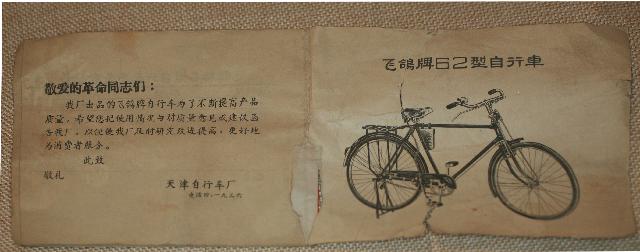 敬爱的革命同志们：
我厂出品的飞鸽牌自行车为了不断提高产品
质量，希望您把使用情况与对质量意见或建议函
告我厂，以便使我厂及时研究改进提高，更好地
为消费者服务。
此致
敬礼
天津自行车厂
飞鸽牌62型自行車